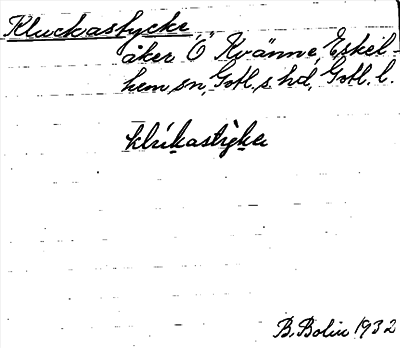 Kluckastycke,
åker Ö Kvänne, Eskel-
hem sn, Gotl. s hd, Gotl. l.
klúkastỳka
B. Bolin 1932